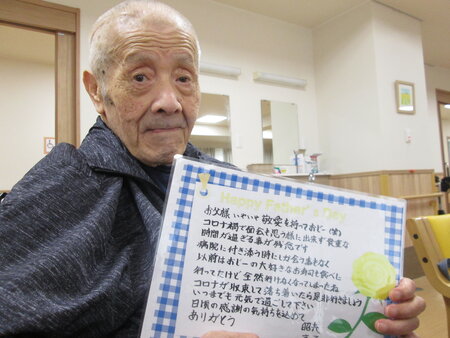 Happy Father's Day
お父様 いやいや 敬愛を持っておじー(笑)
コロナ禍で面会も思う様に出来ず貴重な
時間が過ぎる事が残念です
病院に付き添う時にしか会う事もなく
以前はおじーの大好きなお寿司も食べに
行ってたけど全然行けなくなってしまったね
コロナが収束して落ち着いたら是非行きましょう
いつまでも元気で過ごして下さい
日頃の感謝の気持ちを込めて
ありがとう